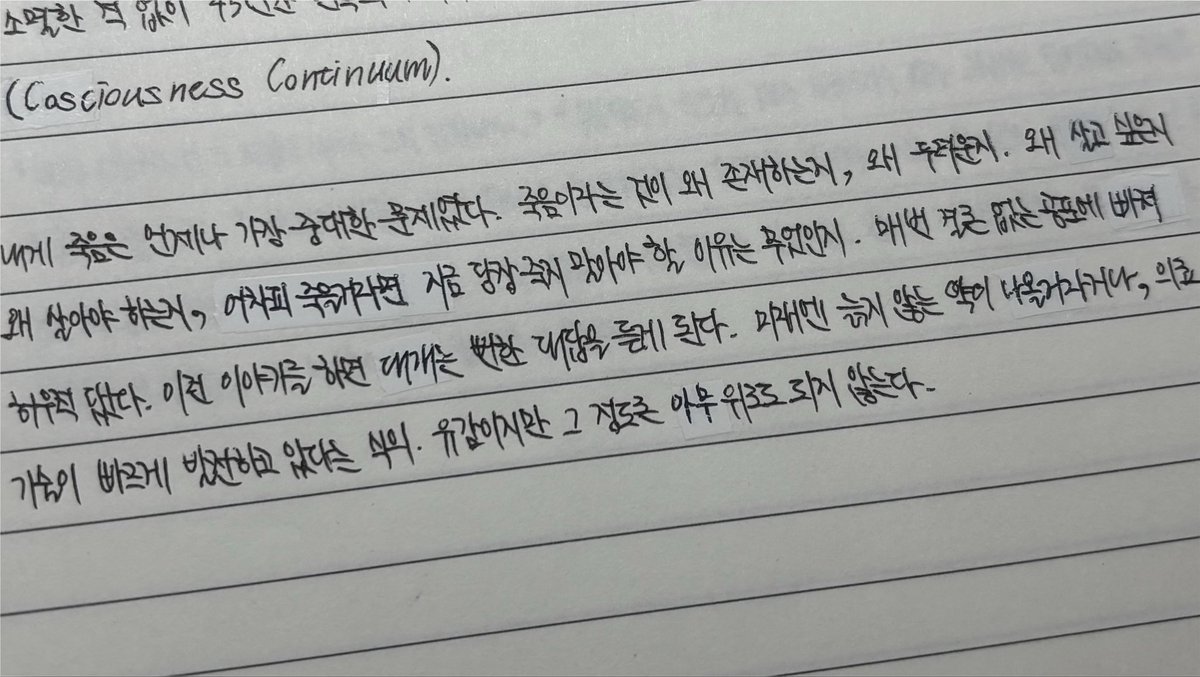 소멸한 적 없이 45년간
(Cosciousness Continuum).
내게 죽음은 언제나 가장 중대한 문제였다. 죽음이라는 것이 왜 존재하는지, 왜 두려운지. 왜 살고 싶은지
왜 살아야 하는지, 어차피 죽을거라면 지금 당장 죽지 말아야 할 이유는 무엇인지. 매번 결론 없는 공포에 빠져
허우적 댔다. 이런 이야기를 하면 대개는 뻔한 대답을 듣게 된다. 미래엔 늙지 않는 약이 나올거라거나, 의료
기술이 빠르게 발전하고 있다는 식의. 유감이지만 그 정도론 아무 위로도 되지 않는다.